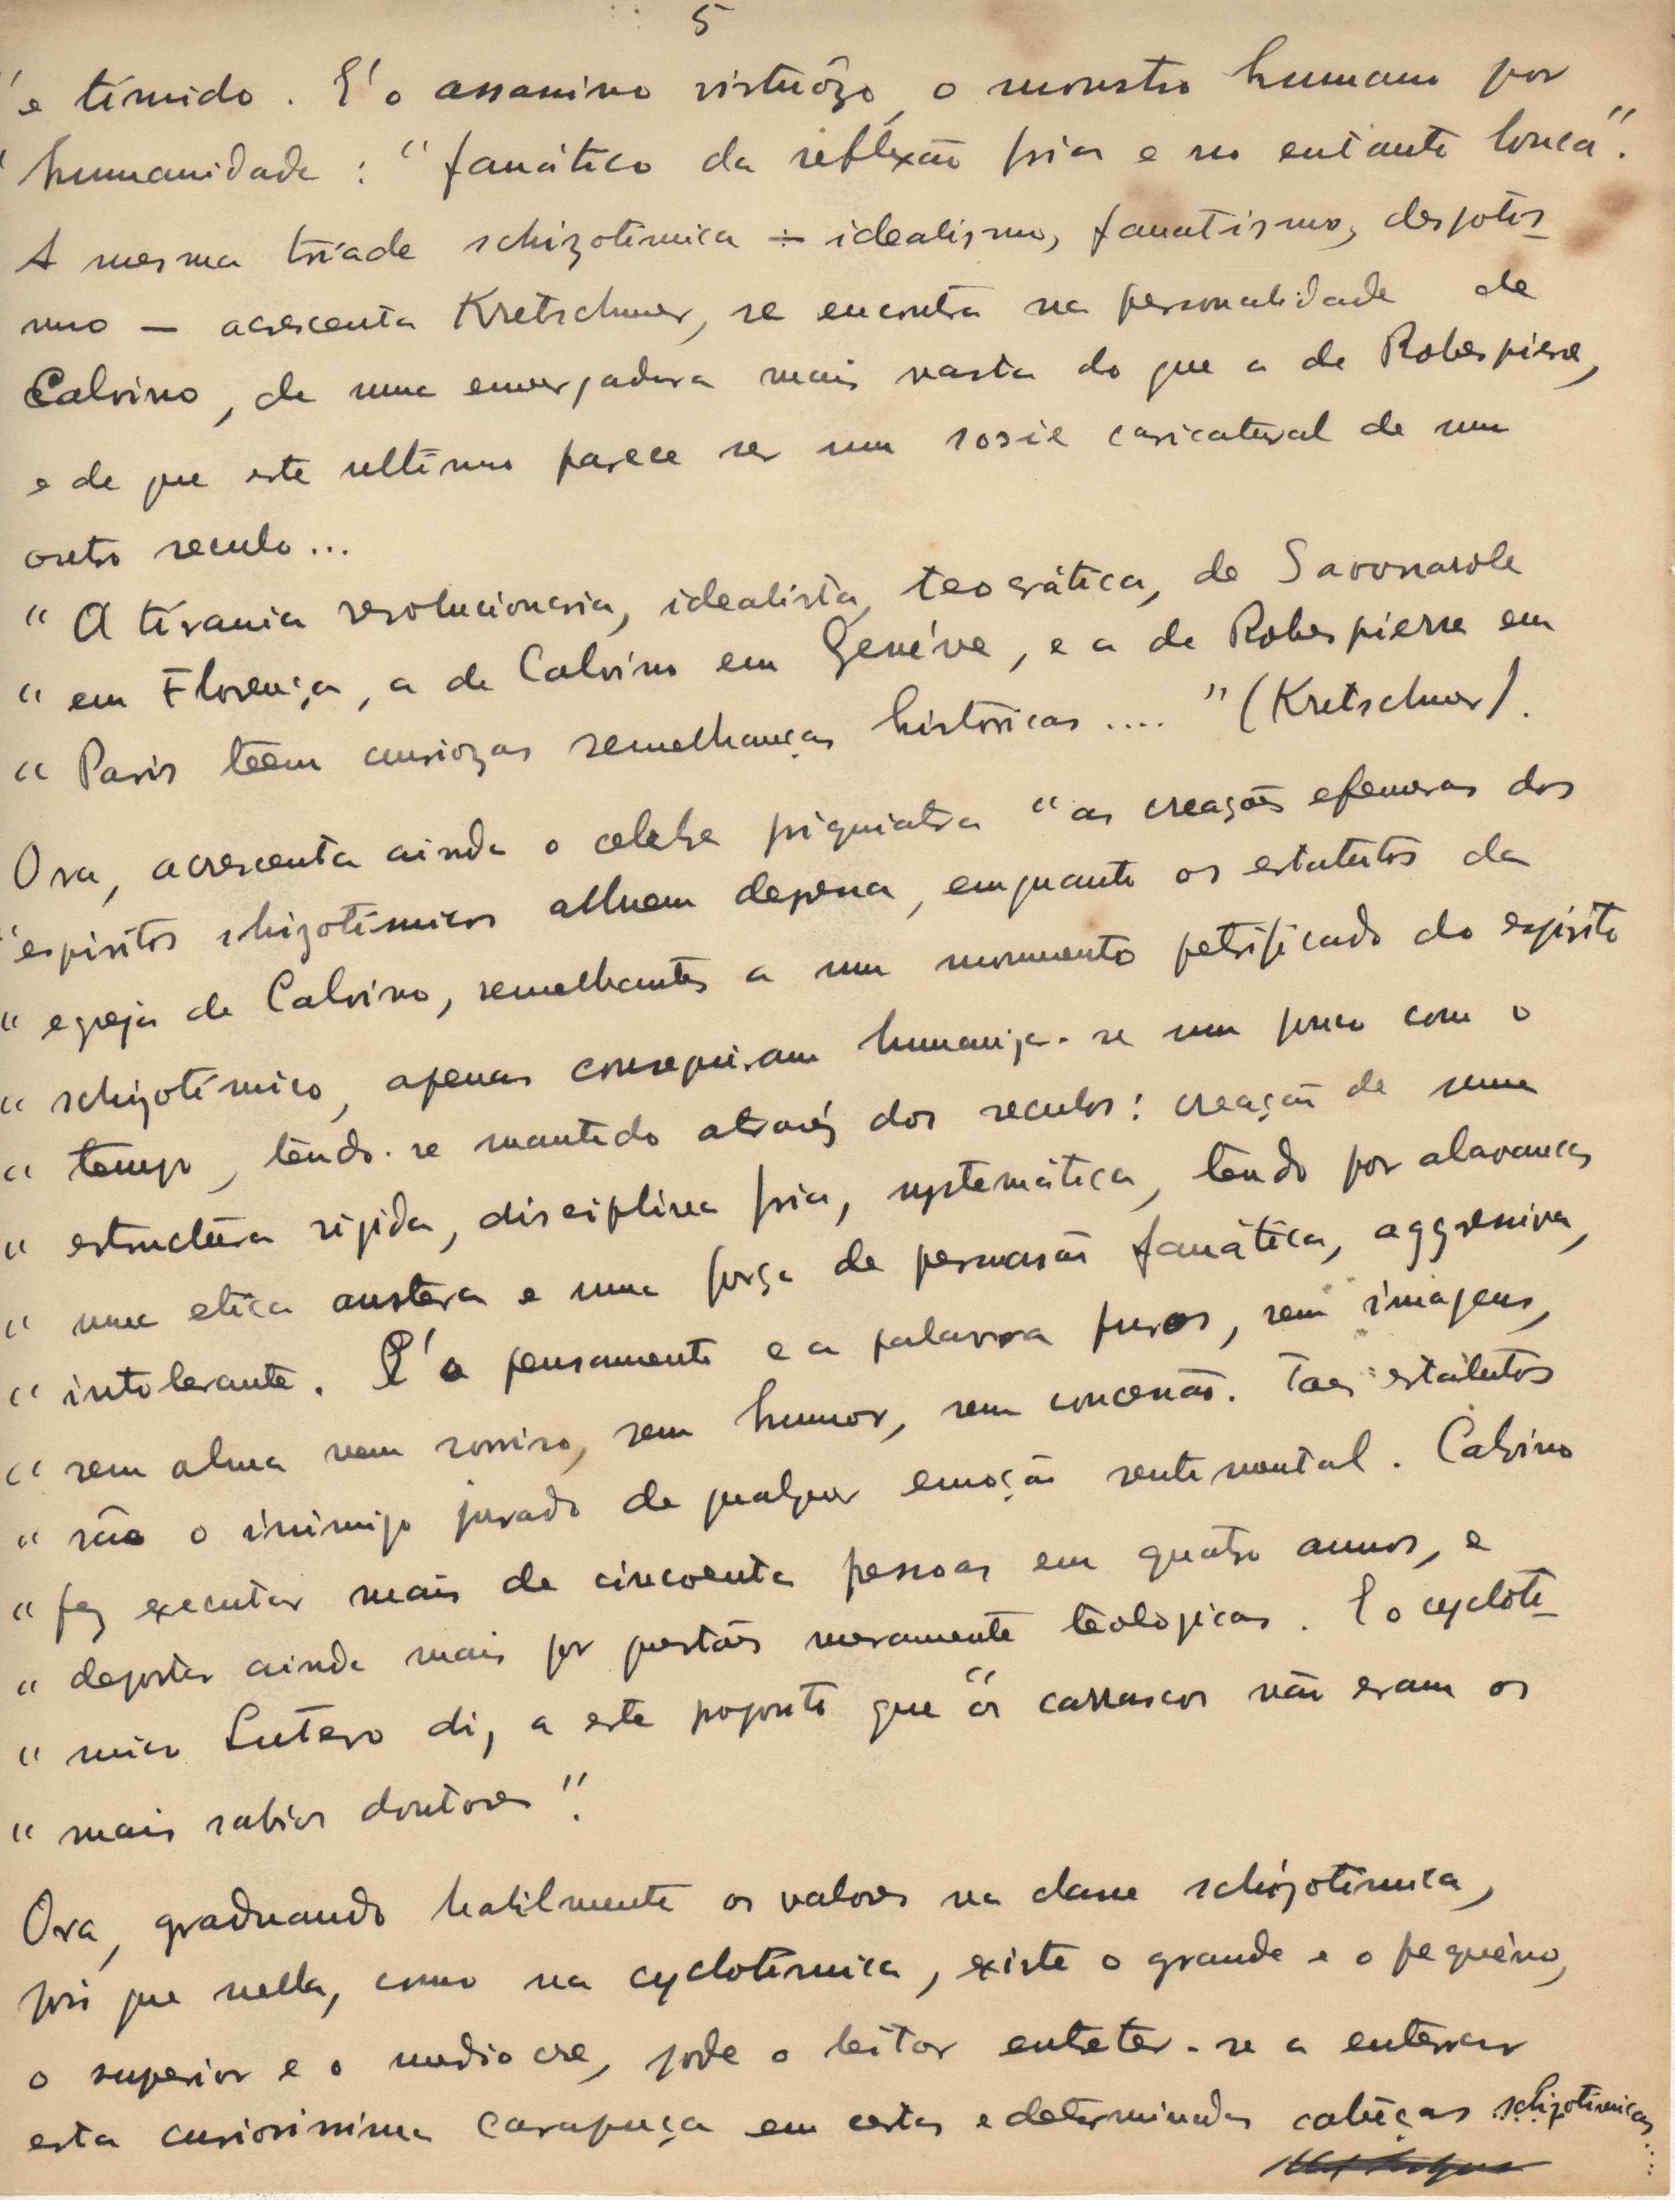 5
"e tímido. E' o assassino virtuôzo, o monstro humano por
"humanidade: "fanático da reflexão fria e no entanto louca".
A mesma tríade schizotímica ÷ idealismo, fanatismo, despotis-
mo — acrescenta Kretschmer, se encontra na personalidade de
Calvino, de uma envergadura mais vasta do que a de Robespierre,
e de que este ultimo parece ser um sosie caricatural de um
outro seculo...
"A tirania revolucionaria, idealista, teocrática, de Savonarole
"em Florença, a de Calvino em Genéve, e a de Robespierre em
"Paris têem curiozas semelhanças históricas...." (Kretschmer).
Ora, acrescenta ainda o celebre psiquiatra "as creações efemeras dos
"espiritos schizotímicos alluem depressa, emquanto os estatutos da
"egreja de Calvino, semelhantes a um monumento petrificado do espirito
"schizotímico, apenas conseguiram humaniza-se um pouco com o
"tempo, tendo-se mantido atravéz dos seculos: creação de uma
"estructura rigida, disciplina fria, systemática, tendo por alavancas
"uma etica austera e uma força de persuasão fanática, aggressiva,
"intolerante. E' o pensamento e a palavra puros, sem imagens,
"sem alma nem sorriso, sem humor, sem concessão. Taes estatutos
"são o inimigo jurado de qualquer emoção sentimental. Calvino
"fez executar mais de cincoenta pessoas em quatro annos, e
"deportar ainda mais por questões meramente teologicas. E o cycloti-
"mico Lutero diz a este proposito que "os carrascos não eram os
"mais sabios doutores".
Ora, graduando habilmente os valores na classe schizotímica,
pois que nella, como na cyclotímica, existe o grande e o pequêno,
o superior e o mediocre, pode o leitor entreter-se a enterrar
esta curiosissima carapuça em certas e determinadas cabêças schizotimicas....